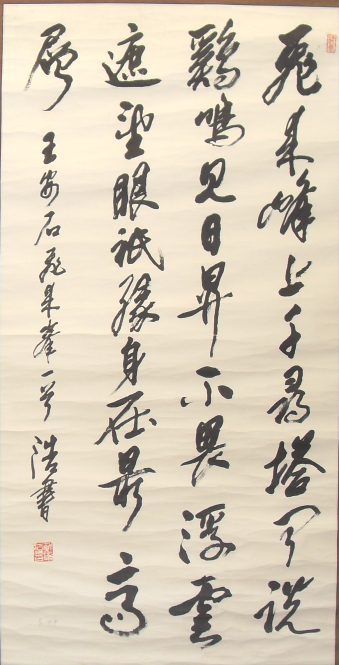 飛来峰上千尋塔聞説
鷄鳴見日昇不畏浮雲
遮望眼祇縁身在最高
層 王安石飛来峯一首 浩書